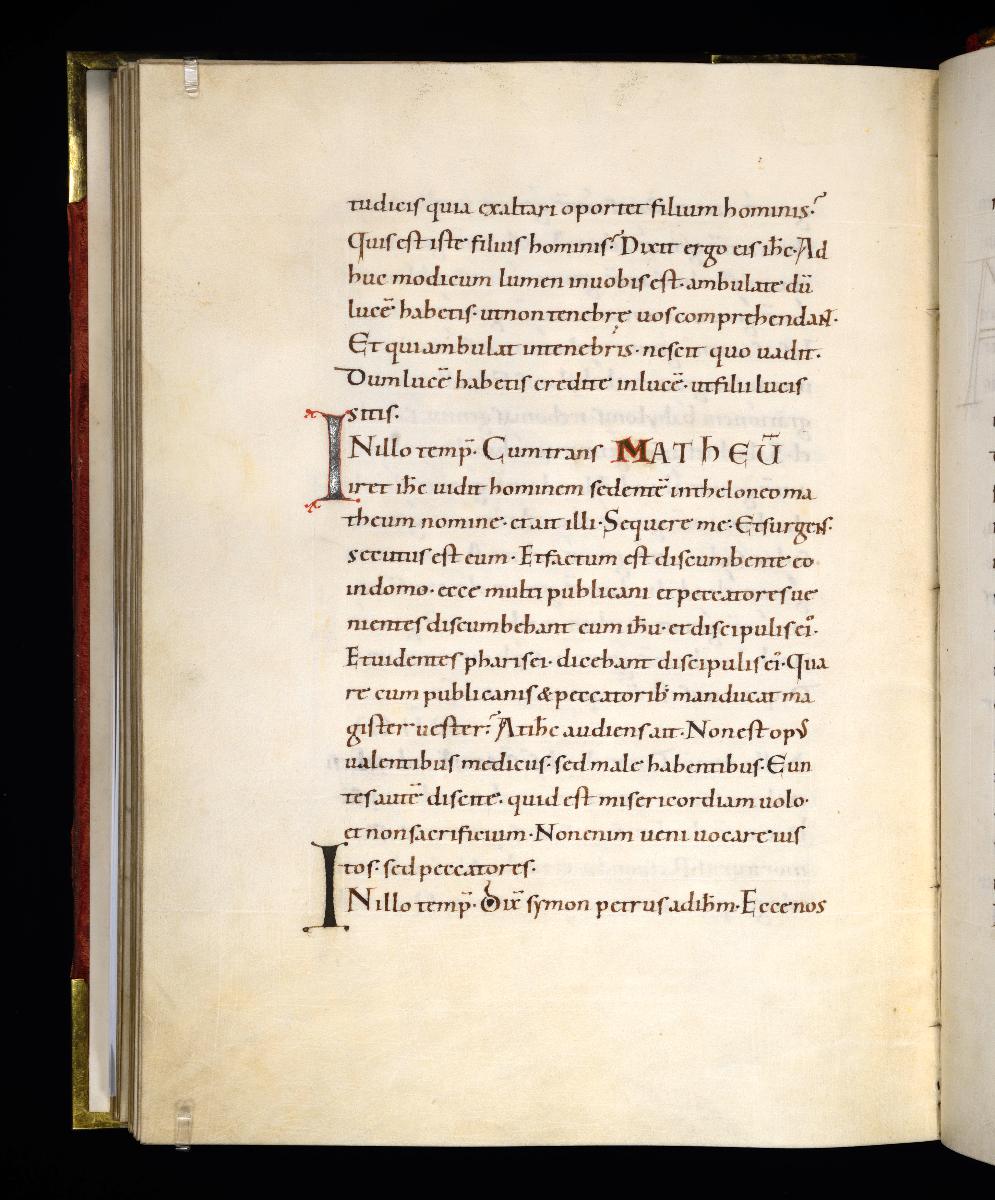 tu dicis quia exaltari oportet filium hominis?
Quis est iste filius hominis? Dixit ergo eis ihc· Ad
huc modicum lumen inuobis est· ambulate dū
lucē habetis· utnon tenebrę uos comprehendant·
Et qui ambulat intenebris· nescit quo uadit·
Dum lucē habetis credite inlucē· utfilii lucis
sitis·
INillo temp̄· Cum trans MATHEŪ
iret ihc uidit hominem sedentē intheloneo ma
theum nomine· et ait illi· Sequere me· Et surgens·
secutus est eum· Et factum est discumbente eo
indomo· ecce multi publicani et peccatores ue
nientes discumbebant cum ihu· et discipulis ei᾽·
Et uidentes pharisei· dicebant discipulis ei᾽· Qua
re cum publicanis & peccatorib; manducat ma
gister uester? At ihc audiens ait· Non est op᾽
ualentibus medicus· sed male habentibus· Eun
tes autē discite· quid est misericordiam uolo·
et non sacrificium· Non enim ueni uocare ius
tos· sed peccatores·
INillo temp̄· Dix̄ symon petrus ad ihm· Ecce nos